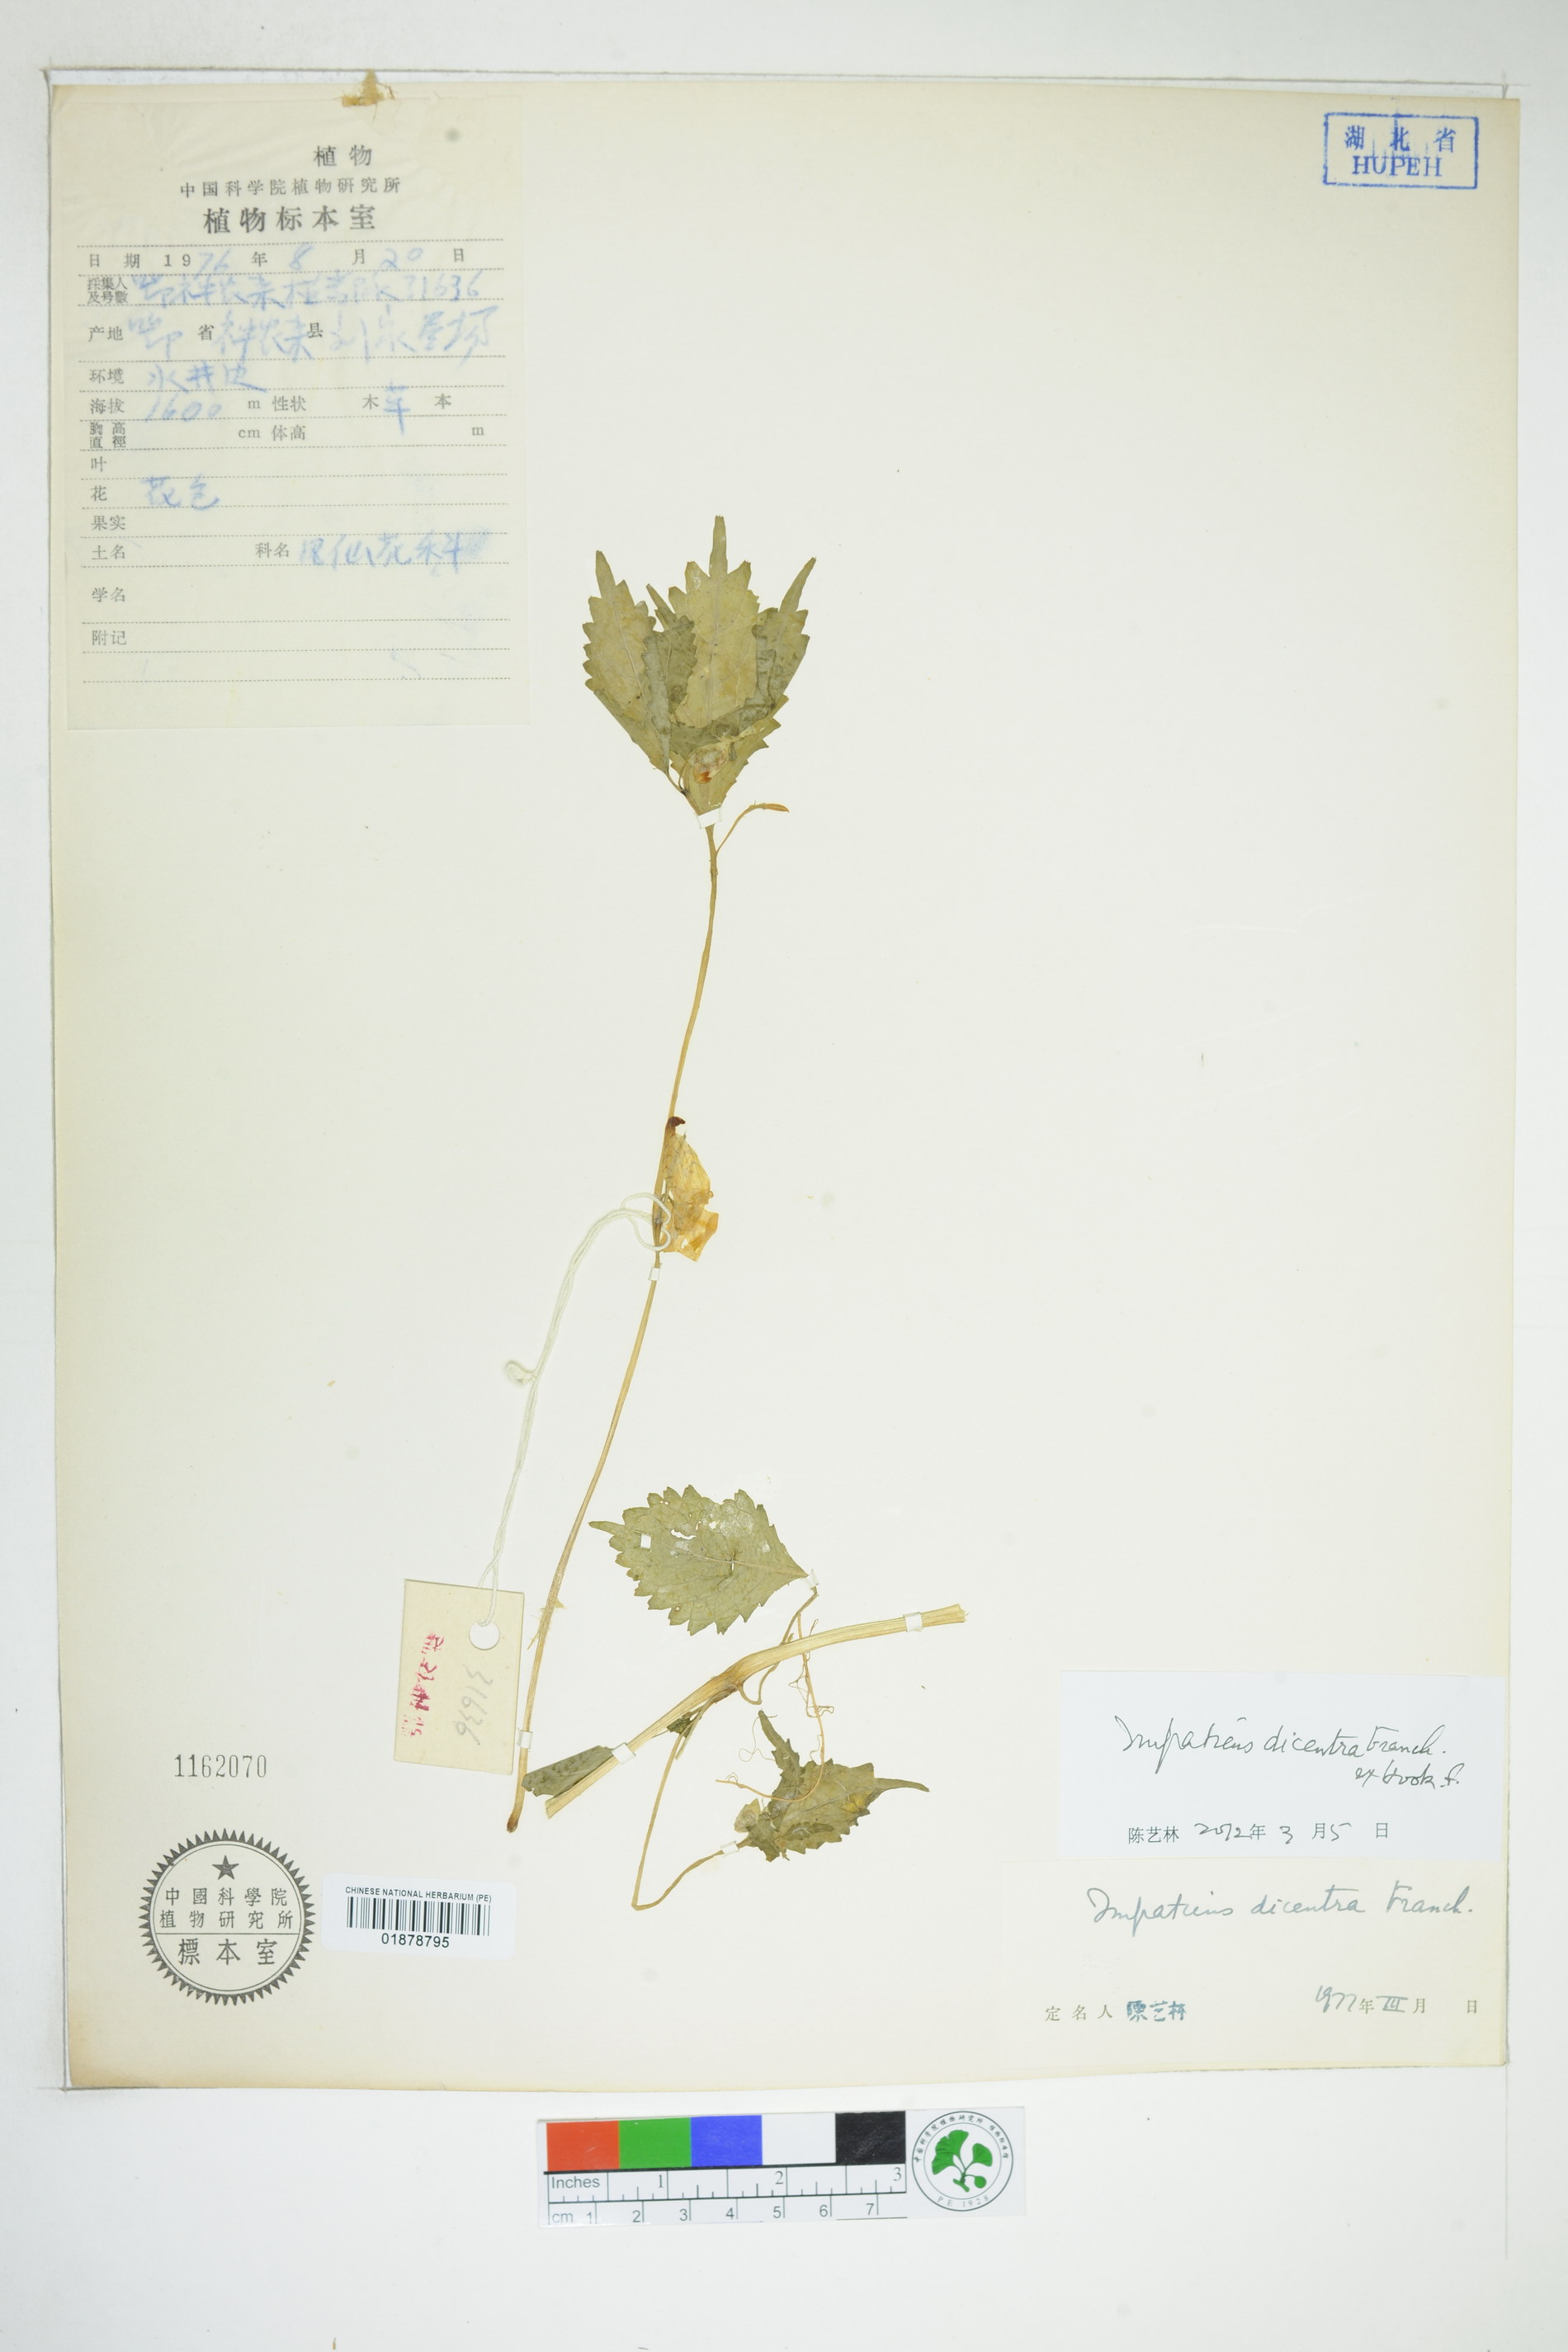 植物
中国科学院植物研究所
植物标本室
日期 1976年8月20日
採集人及号数 鄂神农架植考队31636
产地 鄂省神农架县
环境
海拔 1600 m 性状 木草本
胸高直徑 cm 体高 m
叶
花
果实
土名 科名 凤仙花科
学名
附记
湖北省
HUPEH
31636
1162070
中國科學院
植物研究所
標本室
CHINESE NATIONAL HERBARIUM (PE)
01878795
Impatiens dicentra Franch.
ex Hook. f.
陈艺林 2012年3月5日
Impatiens dicentra Franch.
定名人 陈艺林 1977年III月 日
Inches 1 2 3
cm 1 2 3 4 5 6 7
PE 1928